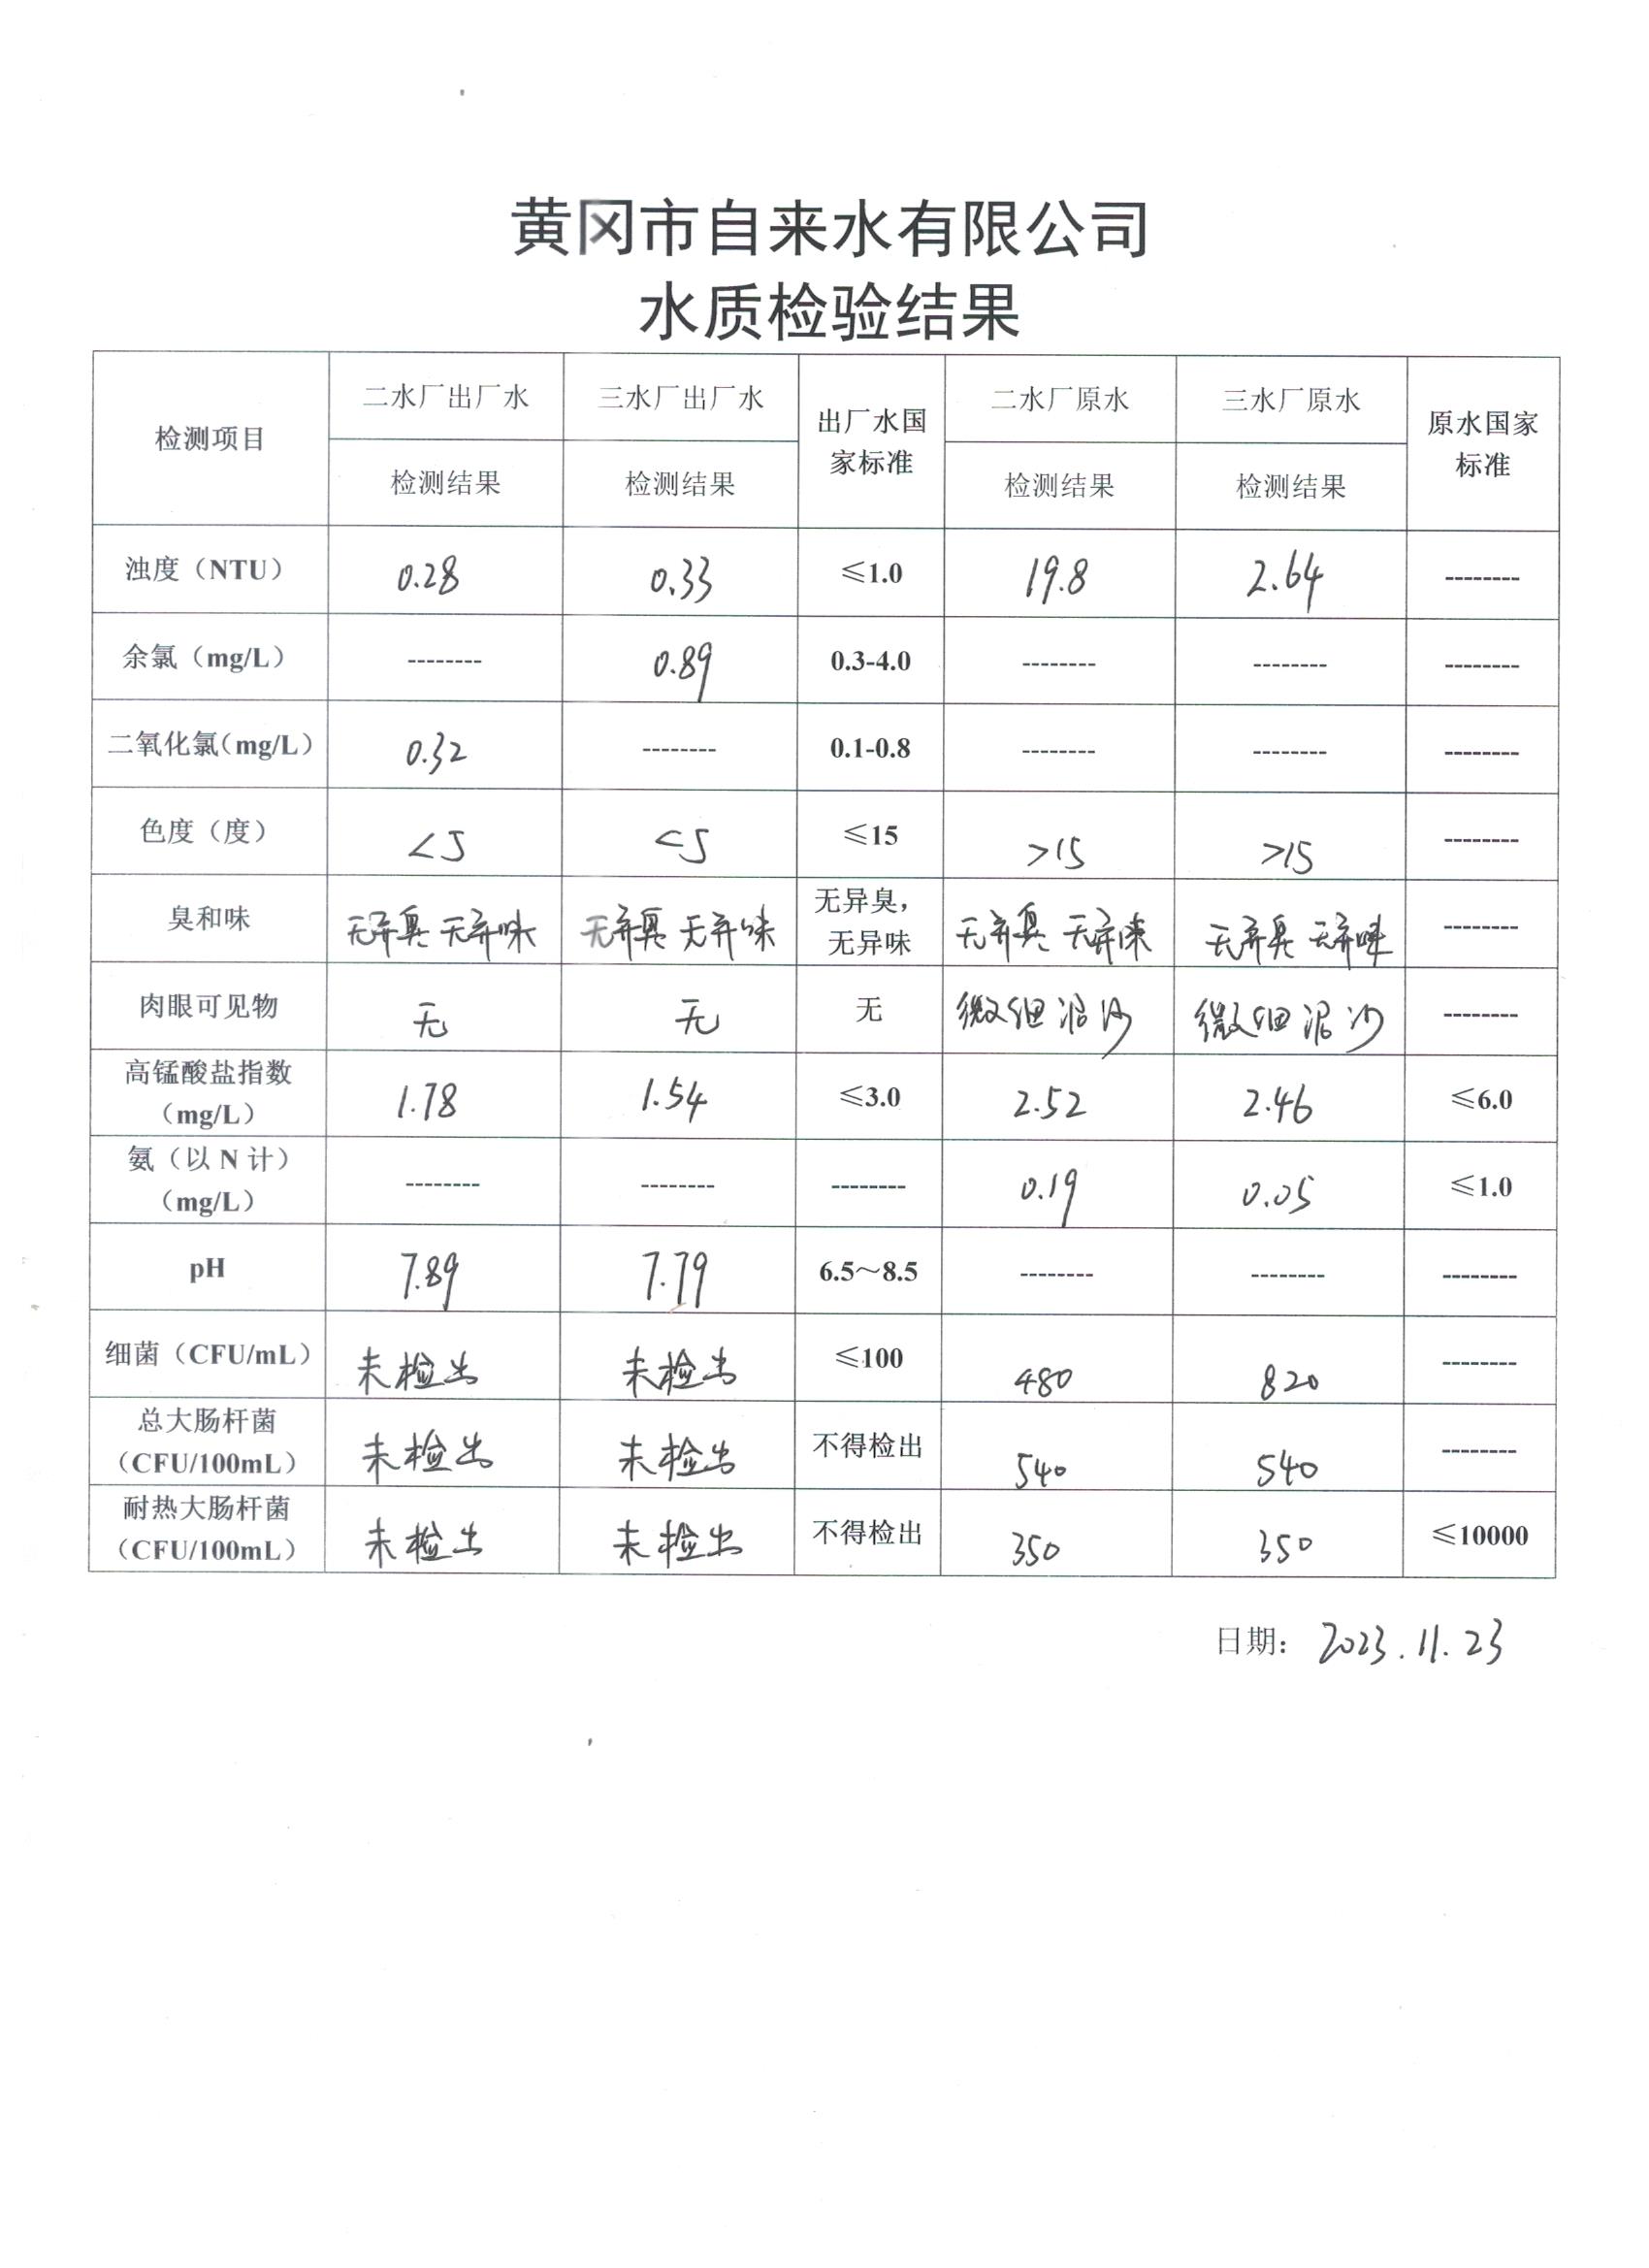 黄冈市自来水有限公司
水质检验结果
检测项目 二水厂出厂水 三水厂出厂水 出厂水国家标准 二水厂原水 三水厂原水 原水国家标准
检测结果 检测结果 检测结果 检测结果
浊度（NTU） 0.28 0.33 ≤1.0 19.8 2.64 --------
余氯（mg/L） -------- 0.89 0.3-4.0 -------- -------- --------
二氧化氯（mg/L） 0.32 -------- 0.1-0.8 -------- -------- --------
色度（度） <5 <5 ≤15 >15 >15 --------
臭和味 无异臭 无异味 无异臭 无异味 无异臭，无异味 无异臭 无异味 无异臭 无异味 --------
肉眼可见物 无 无 无 微细泥沙 微细泥沙 --------
高锰酸盐指数（mg/L） 1.78 1.54 ≤3.0 2.52 2.46 ≤6.0
氨（以 N 计）（mg/L） -------- -------- -------- 0.19 0.05 ≤1.0
pH 7.89 7.79 6.5～8.5 -------- -------- --------
细菌（CFU/mL） 未检出 未检出 ≤100 480 820 --------
总大肠杆菌（CFU/100mL） 未检出 未检出 不得检出 540 540 --------
耐热大肠杆菌（CFU/100mL） 未检出 未检出 不得检出 350 350 ≤10000
日期： 2023.11.23